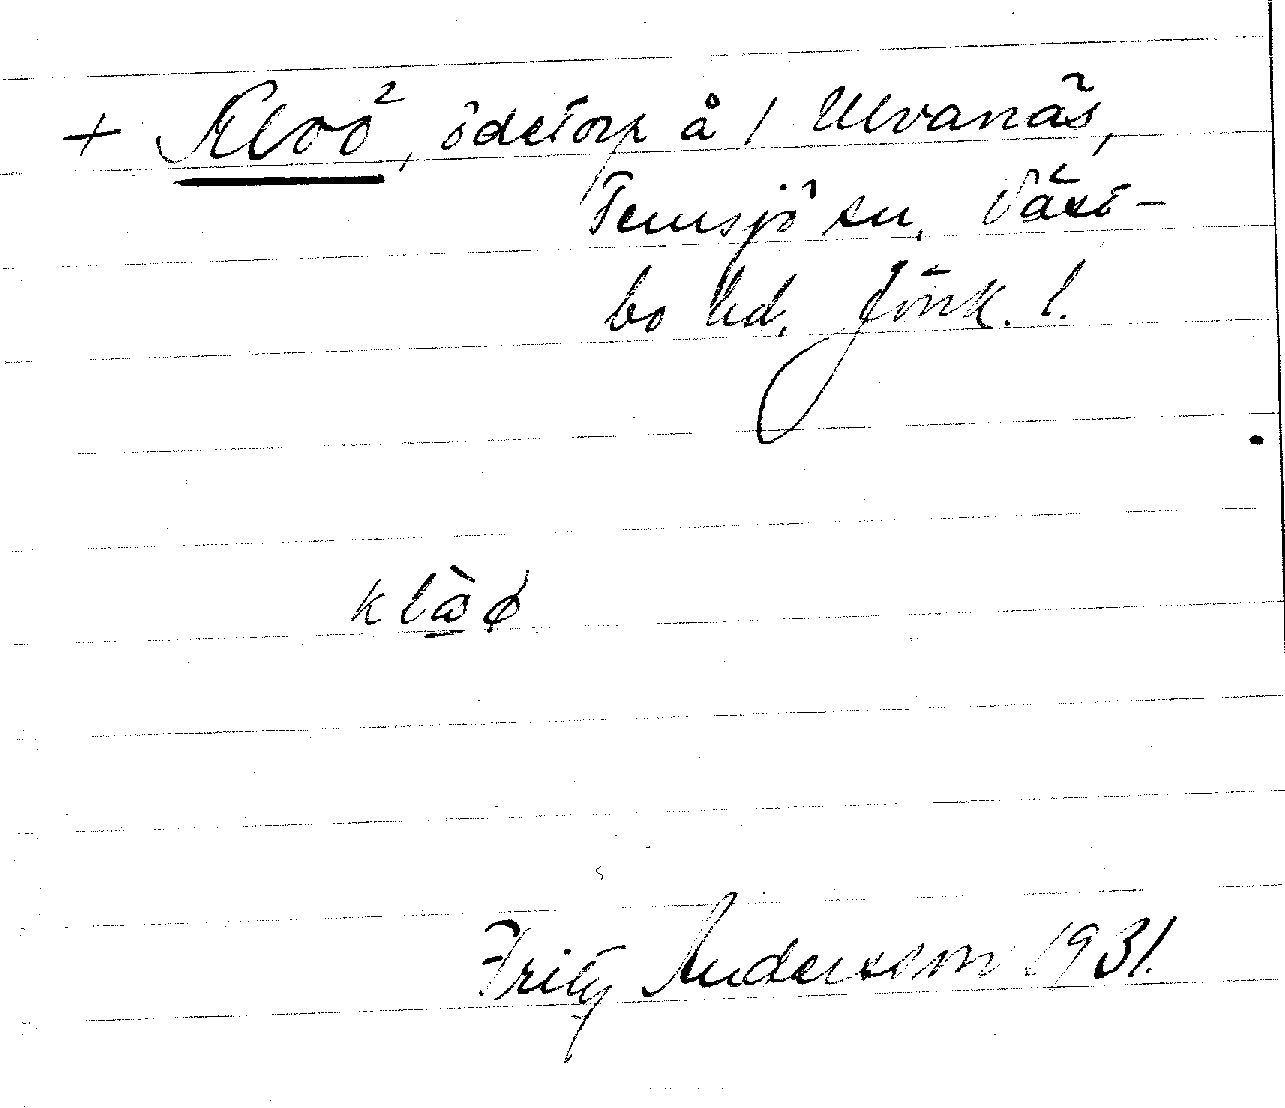 + Kloö², ödetorp å 1 Ulvanäs,
Femsjö sn, Väst-
bo hd. Jönk. l.
Fritz Andersson 1931.